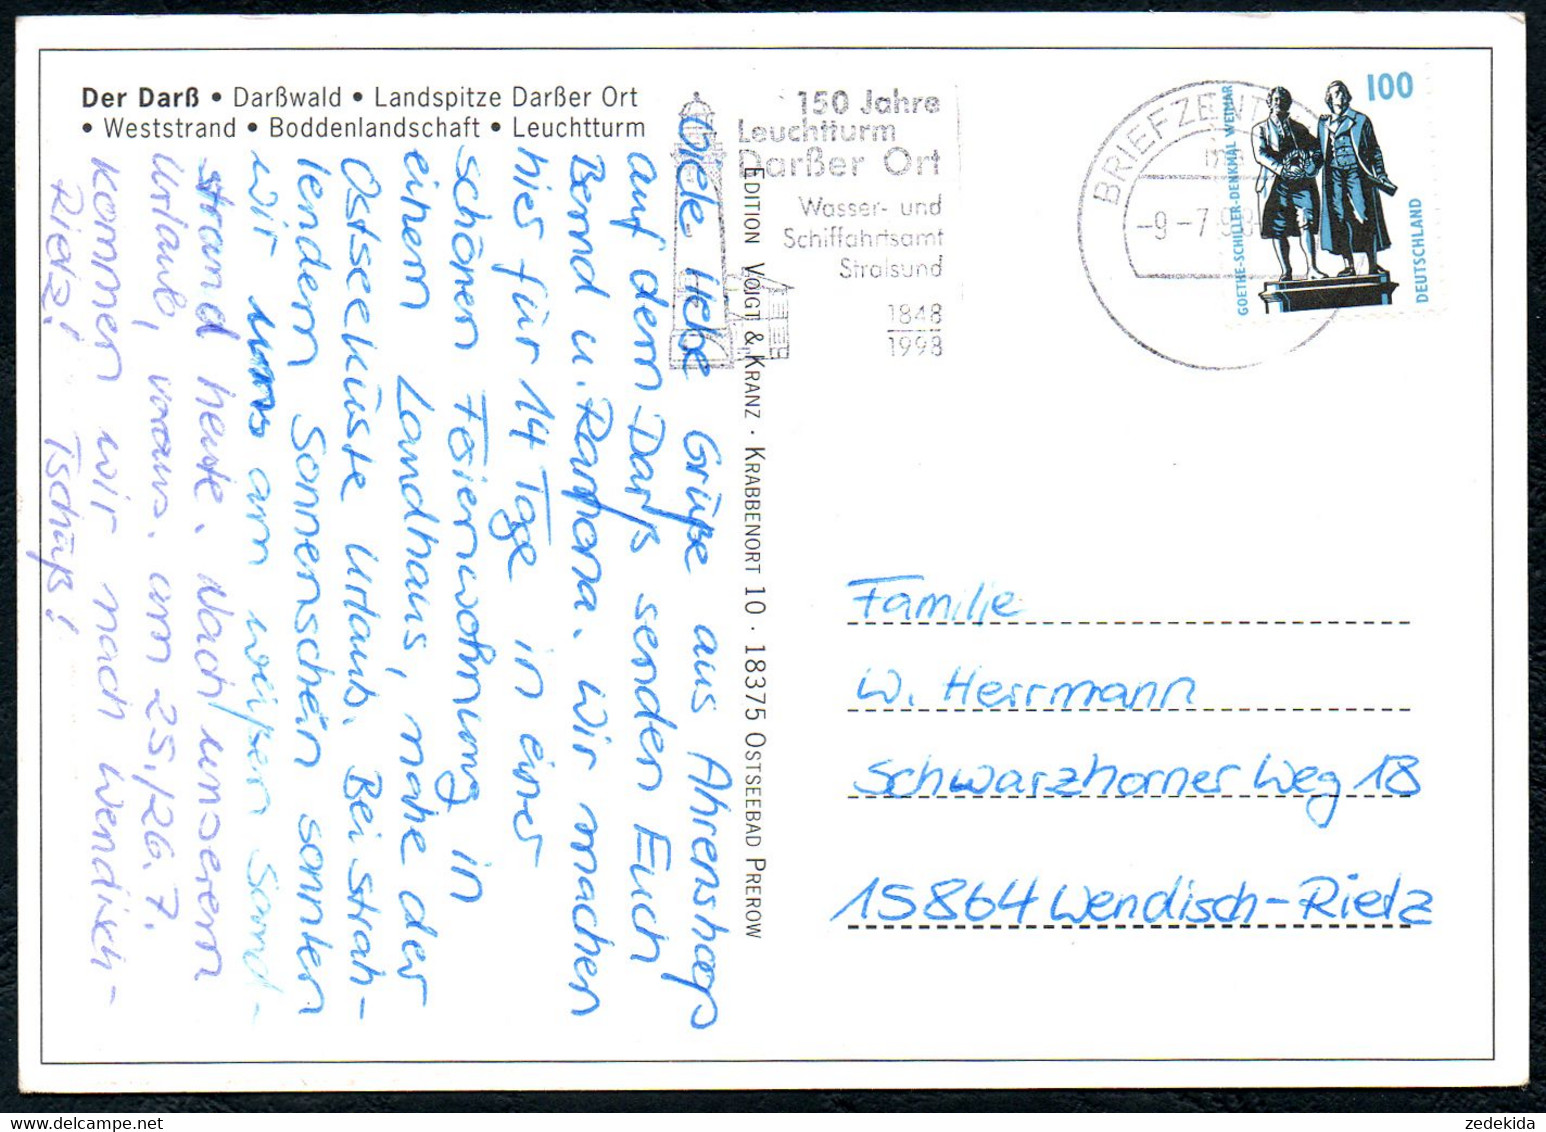 Der Darß • Darßwald • Landspitze Darßer Ort
• Weststrand • Boddenlandschaft • Leuchtturm
150 Jahre
Leuchtturm
Darßer Ort
Wasser- und
Schiffahrtsamt
Stralsund
1848
1998
BRIEFZENT
-9.-7.98
100
GOETHE-SCHILLER-DENKMAL WEIMAR
DEUTSCHLAND
EDITION VOIGT & KRANZ · KRABBENORT 10 · 18375 OSTSEEBAD PREROW
Viele liebe Grüße aus Ahrenshoop
auf dem Darß senden Euch
Bernd u. Ramona. Wir machen
hier für 14 Tage in einer
schönen Ferienwohnung in
einem Landhaus, nahe der
Ostseeküste Urlaub. Bei strah-
lendem Sonnenschein sonnten
wir uns am weißen Sand-
strand heute. Nach unserem
Urlaub, voraus. am 25./26.7.
kommen wir nach Wendisch-
Rietz! Tschüß!
Familie
W. Herrmann
Schwarzhorner Weg 18
15864 Wendisch-Rietz
zedekida